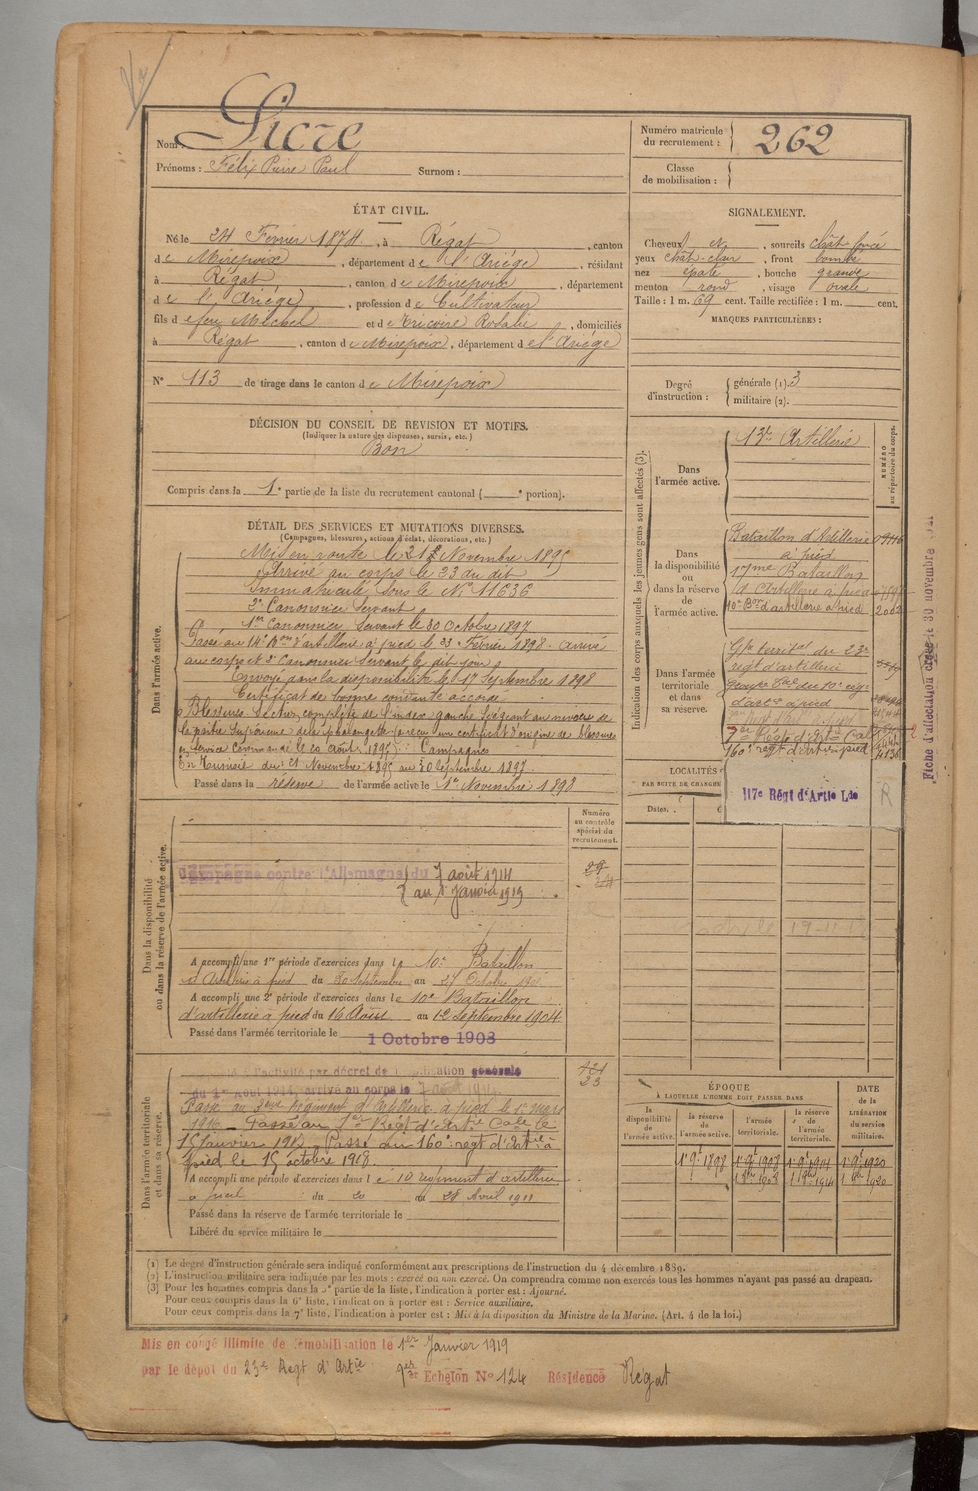 Nom : Sicre
Prénoms : Félix Pierre Paul Surnom :
Numéro matricule du recrutement : 262
Classe de mobilisation :
ÉTAT CIVIL.
Né le 24 Février 1874, à Régat, canton
de Mirepoix, département de l'Ariège, résidant
à Régat, canton de Mirepoix, département
de l'Ariège, profession de Cultivateur
fils de feu Michel et de Tricoire Rosalie, domiciliés
à Régat, canton de Mirepoix, département de l'Ariège
N° 113 de tirage dans le canton de Mirepoix
SIGNALEMENT.
Cheveux et, sourcils chât. foncé
yeux chât. clair, front bombé
nez épaté, bouche grande
menton rond, visage ovale
Taille : 1 m. 69 cent. Taille rectifiée : 1 m. cent.
MARQUES PARTICULIÈRES :
Degré d'instruction : générale (1). 3
militaire (2).
DÉCISION DU CONSEIL DE REVISION ET MOTIFS.
(Indiquer la nature des dispenses, sursis, etc.)
Bon
Compris dans la 1e partie de la liste du recrutement cantonal ( e portion).
DÉTAIL DES SERVICES ET MUTATIONS DIVERSES.
(Campagnes, blessures, actions d'éclat, décorations, etc.)
Dans l'armée active.
Mis en route le 21 Novembre 1895
Arrivé au corps le 23 du dit
Immatriculé sous le N° 11636
2e Canonnier servant
1er Canonnier servant le 30 Octobre 1897
Passé au 14e Bon d'artillerie à pied le 23 Février 1898. arrivé
au corps et 2e Canonnier servant le dit jour
Envoyé dans la disponibilité le 17 Septembre 1898
Certificat de bonne conduite accordé
Blessures: Section complète de l'index gauche siégeant au niveau de
la partie supérieure de la phalangette a reçu un certificat d'origine de blessures
en service commandé le 20 août 1897. Campagnes
En Tunisie du 21 Novembre 1895 au 20 Septembre 1897
Passé dans la réserve de l'armée active le 1er Novembre 1898
Indication des corps auxquels les jeunes gens sont affectés (3).
NUMÉRO au répertoire du corps.
Dans l'armée active.
13e Artillerie
Dans la disponibilité ou dans la réserve de l'armée active.
Bataillon d'Artillerie
à pied
17me Bataillon
d'Artillerie à pied
10e Bon d'artillerie à pied 2002
Dans l'armée territoriale et dans sa réserve.
Gpe territal du 23e
régt d'artillerie
Groupe Teal du 10e régt
d'artie à pied
7er Régt d'Artie Cale
160e régt d'Artie à pied
117e Régt d'Artie Lde
R
LOCALITÉS
PAR SUITE DE CHANGE
Dates.
Fiche d'affectation créée le 30 novembre
Dans la disponibilité ou dans la réserve de l'armée active.
Numéro au contrôle spécial du recrutement.
Campagne contre l'Allemagne du 7 août 1914
au 1er Janvier 1919
A accompli une 1re période d'exercices dans le 10e Bataillon
d'Artillerie à pied du 30 Septembre au 27 Octobre
A accompli une 2e période d'exercices dans le 10e Bataillon
d'artillerie à pied du 16 Août au 12 Septembre 1904
Passé dans l'armée territoriale le 1 Octobre 1908
Dans l'armée territoriale et dans sa réserve.
à l'activité par décret de mobilisation générale
du 1er Août 1914, arrivé au corps le 7 août 1914
Passé au 3eme Régiment d'Artillerie à pied le 1er mars
1916. Passé au 1er Régt d'Artie Cale le
15 Janvier 1918. Passé au 160e régt d'Artie à
pied le 15 octobre 1918.
A accompli une période d'exercices dans le 10 régiment d'artillerie
à pied du 20 au 28 Avril 1911
Passé dans la réserve de l'armée territoriale le
Libéré du service militaire le
ÉPOQUE À LAQUELLE L'HOMME DOIT PASSER DANS
la disponibilité de l'armée active.
la réserve de l'armée active.
l'armée territoriale.
la réserve de l'armée territoriale.
DATE de la LIBÉRATION du service militaire.
1er 9e 1898
(1) Le degré d'instruction générale sera indiqué conformément aux prescriptions de l'instruction du 4 décembre 1889.
(2) L'instruction militaire sera indiquée par les mots : exercé ou non exercé. On comprendra comme non exercés tous les hommes n'ayant pas passé au drapeau.
(3) Pour les hommes compris dans la 2e partie de la liste, l'indication à porter est : Ajourné.
Pour ceux compris dans la 6e liste, l'indication à porter est : Service auxiliaire.
Pour ceux compris dans la 7e liste, l'indication à porter est : Mis à la disposition du Ministre de la Marine. (Art. 4 de la loi.)
Mis en congé illimité de démobilisation le 1er Janvier 1919
par le dépôt du 23e Régt d'Artie 9er Echelon N° 124 Résidence Régat